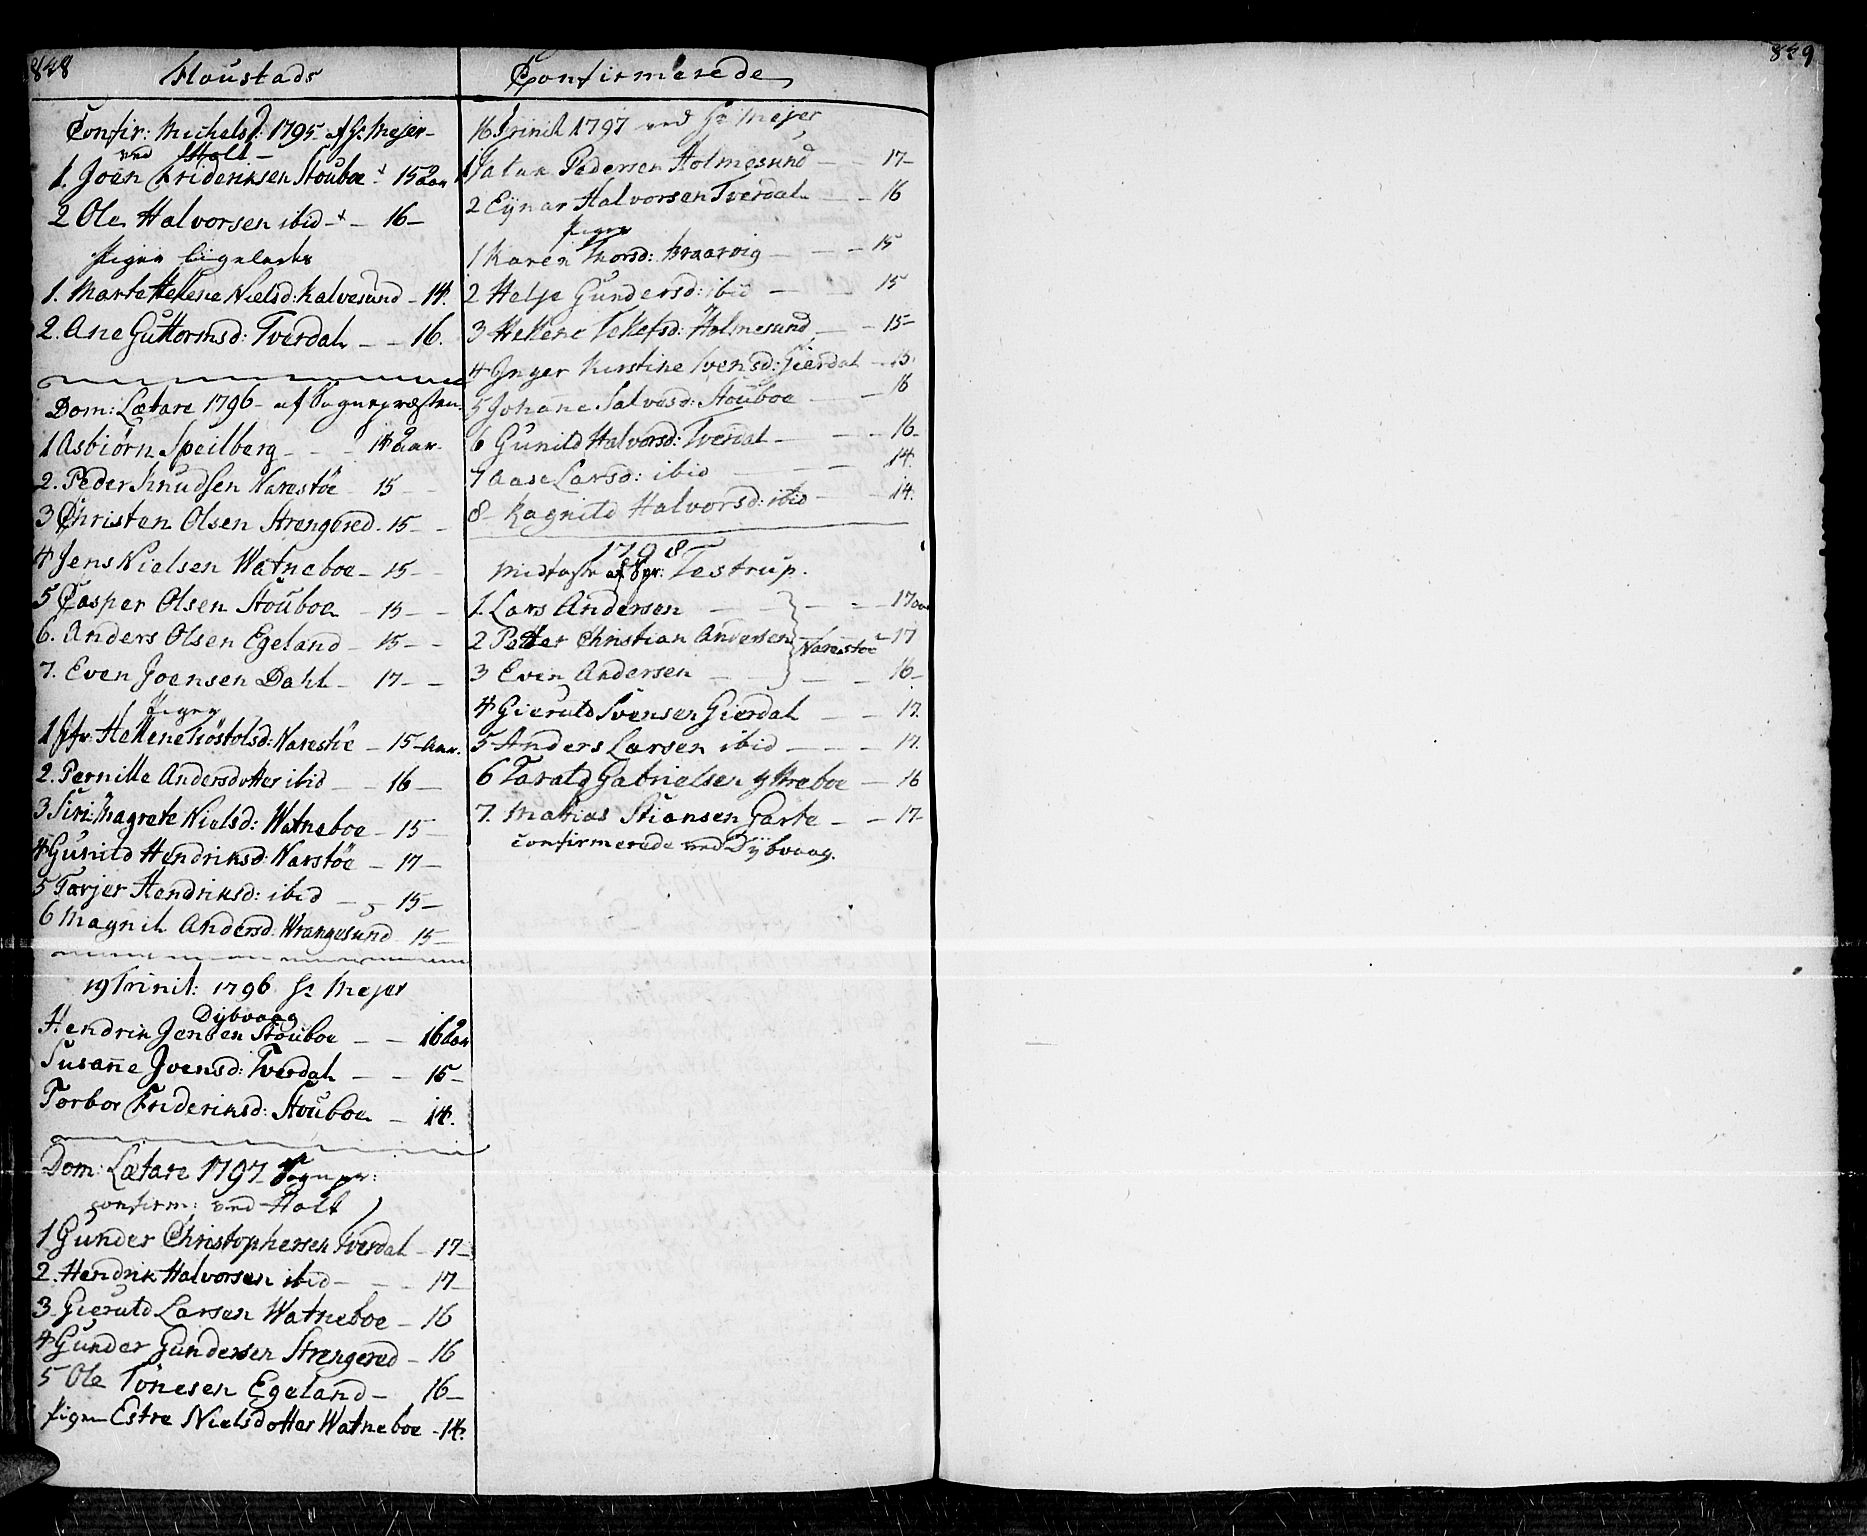 848 Flaüstads Confirmerede
Confir: Michelsd: 1795 af Hr Mejer
ved Holt
1. Joen Frideriksen Stoüboe 15 aar
2 Ole Halvorsen ibid 16
Piger ligeledes
1. Marte Helene Nielsd: Kalvesund 14.
2. Ane Guttormsd: Tverdal 16.
Dom: Lætare 1796 af Sognepræsten
1 Asbiörn Speilberg 14 aar.
2. Peder Knudsen Narestöe 15
3 Christen Olsen Strengered 15
4 Jens Nielsen Watneboe 15
5 Casper Olsen Stoüboe 15
6. Anders Olsen Egeland 15
7. Even Joensen Dahl 17
Piger
1 Jfr: Hellene Tiöstolsd: Narestöe 15 Aar.
2. Pernille Andersdotter ibid 16
3 Siri Magrete Nielsd: Watneboe 15
4 Gunild Hendriksd: Narstöe 17
5 Tarjer Hendriksd: ibid 15
6 Magnil Andersd: Wrangesund 15
19 Trinit: 1796 Hr Mejer
Dybvaag
Hendrik Jensen Stoüboe 16 Aar
Susañe Joensd: Tverdal 15
Torbor Frideriksd: Stoüboe 14.
Dom: Lætare 1797 Sognepr:
confirm: ved Holt
1 Gunder Christophersen Tverdal 17
2. Hendrik Halvorsen ibid 17
3. Gieruld Larsen Watneboe 16
4 Gunder Gundersen Strengered 16
5 Ole Tönesen Egeland 16
Pigen Estre Nielsdotter Watneboe 14.
16 Trinit 1797 ved Hr Mejer
1 Pedersen Holmesund 17
2 Eÿnar Halvorsen Tverdal 16
Piger
1 Karen Thorsd: Braarvig 15
2 Helje Gundersd: ibid 15
3 Hellene Tellefsd: Holmesund 15
4 Inger Kirstine Svensd: Gierdal 15
5 Johañe Salvesd: Stoüboe 16
6 Gunild Halvorsd: Tverdal 16
7 Aase Larsd: ibid 14.
8 Ragnild Halvorsd: ibid 14.
1798
Midfaste af Spr: Testrup.
1. Lars Andersen 17 aar
2 Petter Christian Andersen Narestöe 17
3 Even Andersen 16
4 Gieruld Svensen Gierdal 17.
5 Anders Larsen ibid 17.
6 Tarald Gabrielsen Ytreboe 16
7. Matias Stiansen Garte 17
confirmerede ved Dÿbvaag.
849